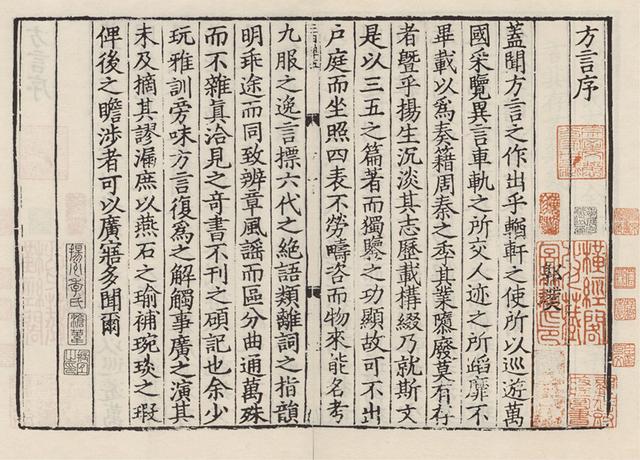 方言序
郭璞
橫經閣
蓋聞方言之作出乎輶軒之使所以巡遊萬
國采覽異言車軌之所交人迹之所蹈靡不
畢載以爲奏籍周秦之季其業隳廢莫有存
者曁乎揚生沉淡其志歷載構綴乃就斯文
是以三五之篇著而獨鑒之功顯故可不出
戶庭而坐照四表不勞疇咨而物來能名考
九服之逸言標六代之絶語類離詞之指韻
明乖途而同致辨章風謠而區分曲通萬殊
而不雜眞洽見之奇書不刊之碩記也余少
玩雅訓旁味方言復爲之解觸事廣之演其
未及摘其謬漏庶以燕石之瑜補琬琰之瑕
俾後之瞻涉者可以廣寤多聞爾